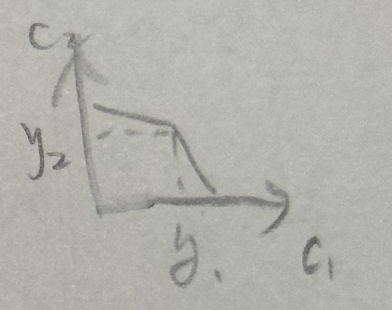 C₂
y₂
y₁
C₁